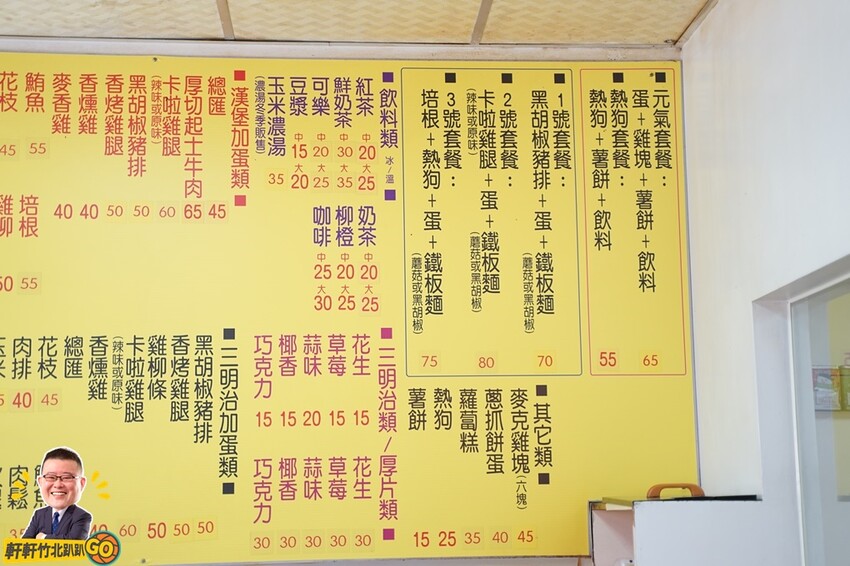 元氣套餐：
蛋+雞塊+薯餅+飲料 65
熱狗套餐：
熱狗+薯餅+飲料 55
■1號套餐：
黑胡椒豬排+蛋+鐵板麵(蘑菇或黑胡椒) 70
■2號套餐：
卡啦雞腿+蛋+鐵板麵(蘑菇或黑胡椒) 80
(辣味或原味)
■3號套餐：
培根+熱狗+蛋+鐵板麵(蘑菇或黑胡椒) 75
■其它類■
麥克雞塊(六塊) 45
蔥抓餅蛋 40
蘿蔔糕 35
熱狗 25
薯餅 15
■飲料類 冰/溫■
紅茶 中20 大25
鮮奶茶 中30 大35
可樂 中20 大25
豆漿 中15 大20
玉米濃湯 35
(濃湯冬季販售)
奶茶 中20 大25
柳橙 中20 大25
咖啡 中25 大30
■三明治類/厚片類■
花生 15
草莓 15
蒜味 20
椰香 15
巧克力 15
花生 30
草莓 30
蒜味 30
椰香 30
巧克力 30
■漢堡加蛋類■
總匯 45
厚切起士牛肉 65
卡啦雞腿 60
(辣味或原味)
黑胡椒豬排 50
香烤雞腿 50
香燻雞 40
麥香雞 40
鮪魚 55
花枝 45
培根 55
雞柳 50
■三明治加蛋類■
黑胡椒豬排 50
香烤雞腿 50
雞柳條 50
卡啦雞腿 60
(辣味或原味)
香燻雞 40
總匯
花枝 45
肉排 40
玉米
鮪魚
肉鬆
軒軒竹北趴趴GO